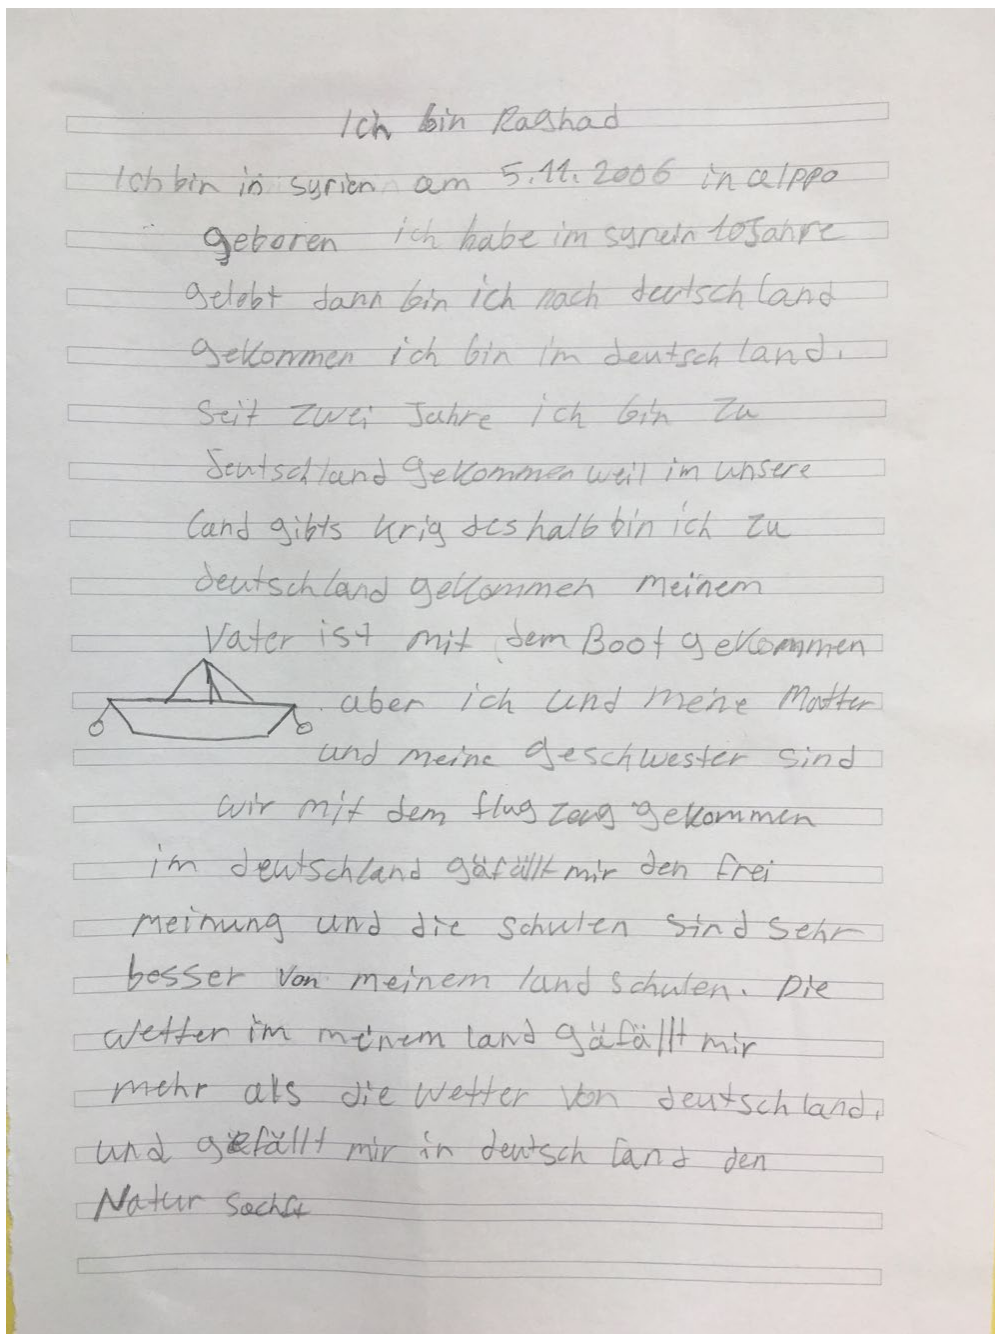 Ich bin Rashad
Ich bin in syrien am 5.11.2006 in alppo
geboren ich habe im syrein 10 Jahre
gelebt dann bin ich nach deutschland
gekommen ich bin im deutschland.
Seit zwei Jahre ich bin zu
deutschland gekommen weil im unsere
land gibts krig deshalb bin ich zu
deutschland gekommen meinem
Vater ist mit dem Boot gekommen
aber ich und meine Mutter
und meine geschwester sind
wir mit dem flug zeug gekommen
im deutschland gäfällt mir den frei
meinung und die schulen sind sehr
besser von meinem land schulen. Die
wetter im meinem land gäfällt mir
mehr als die wetter von deutschland.
und gefällt mir in deutsch land den
Natur